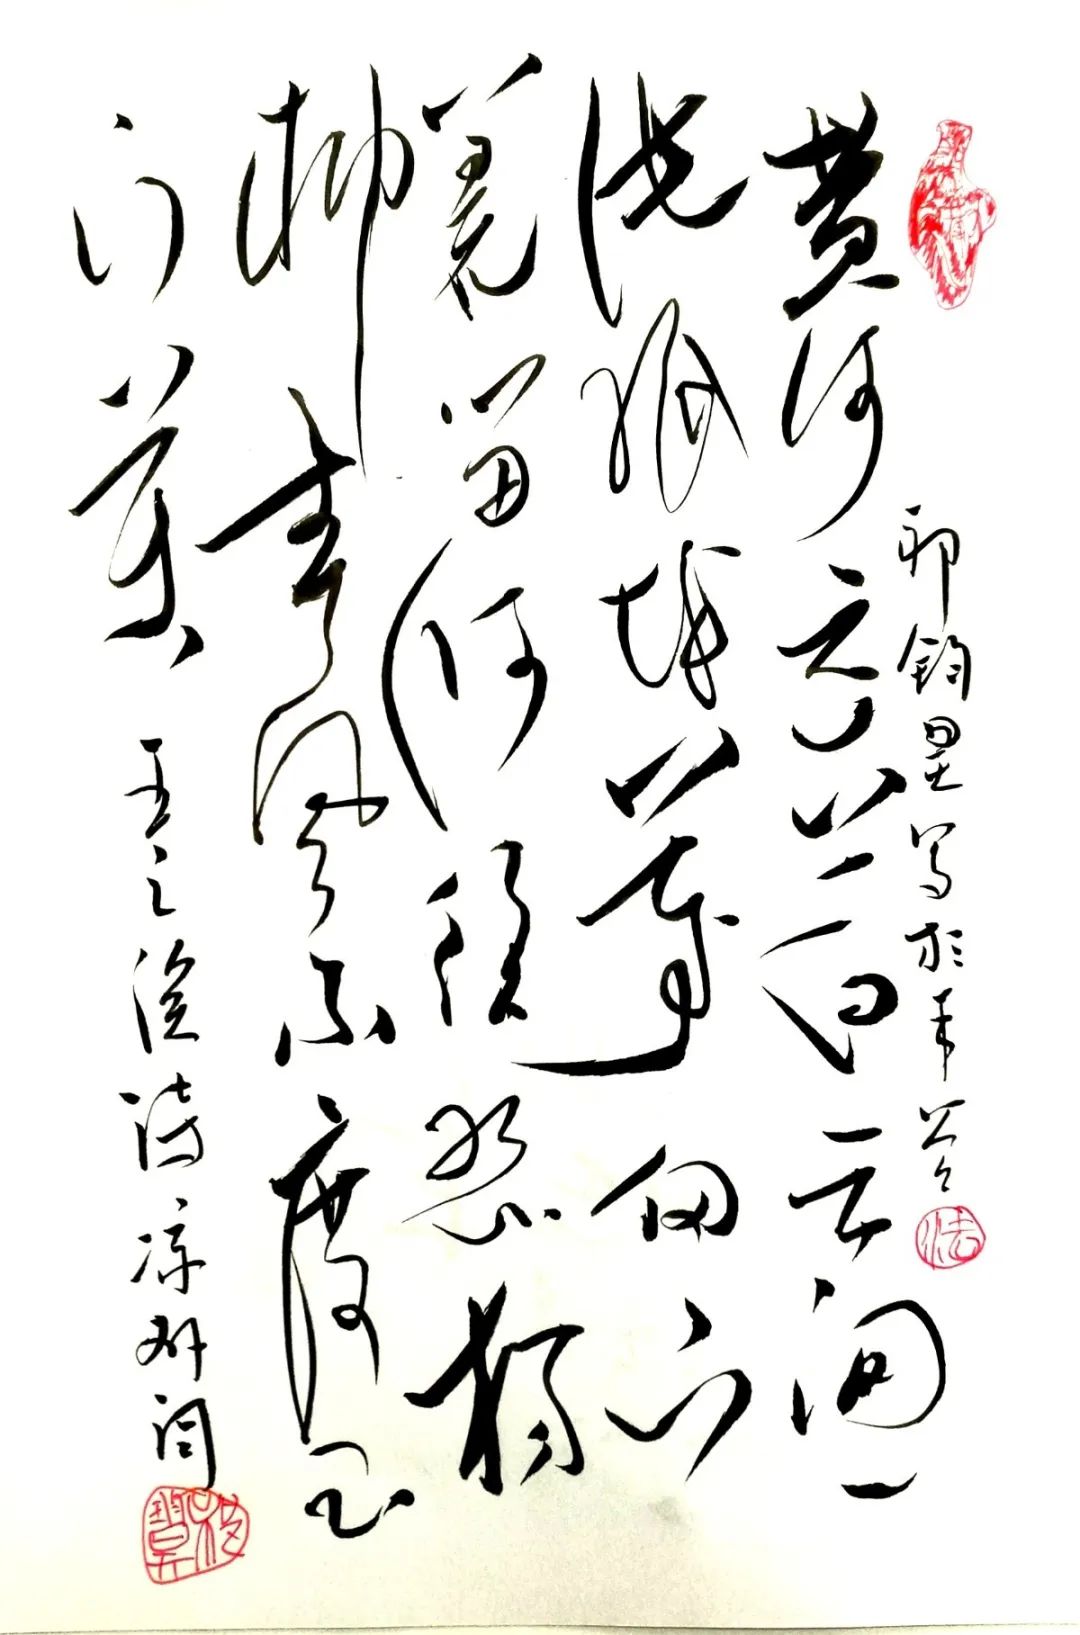 黄河远上白云间一
片孤城万仞山
羌笛何须怨杨
柳春风不度玉
门关 王之涣诗凉州词
写於